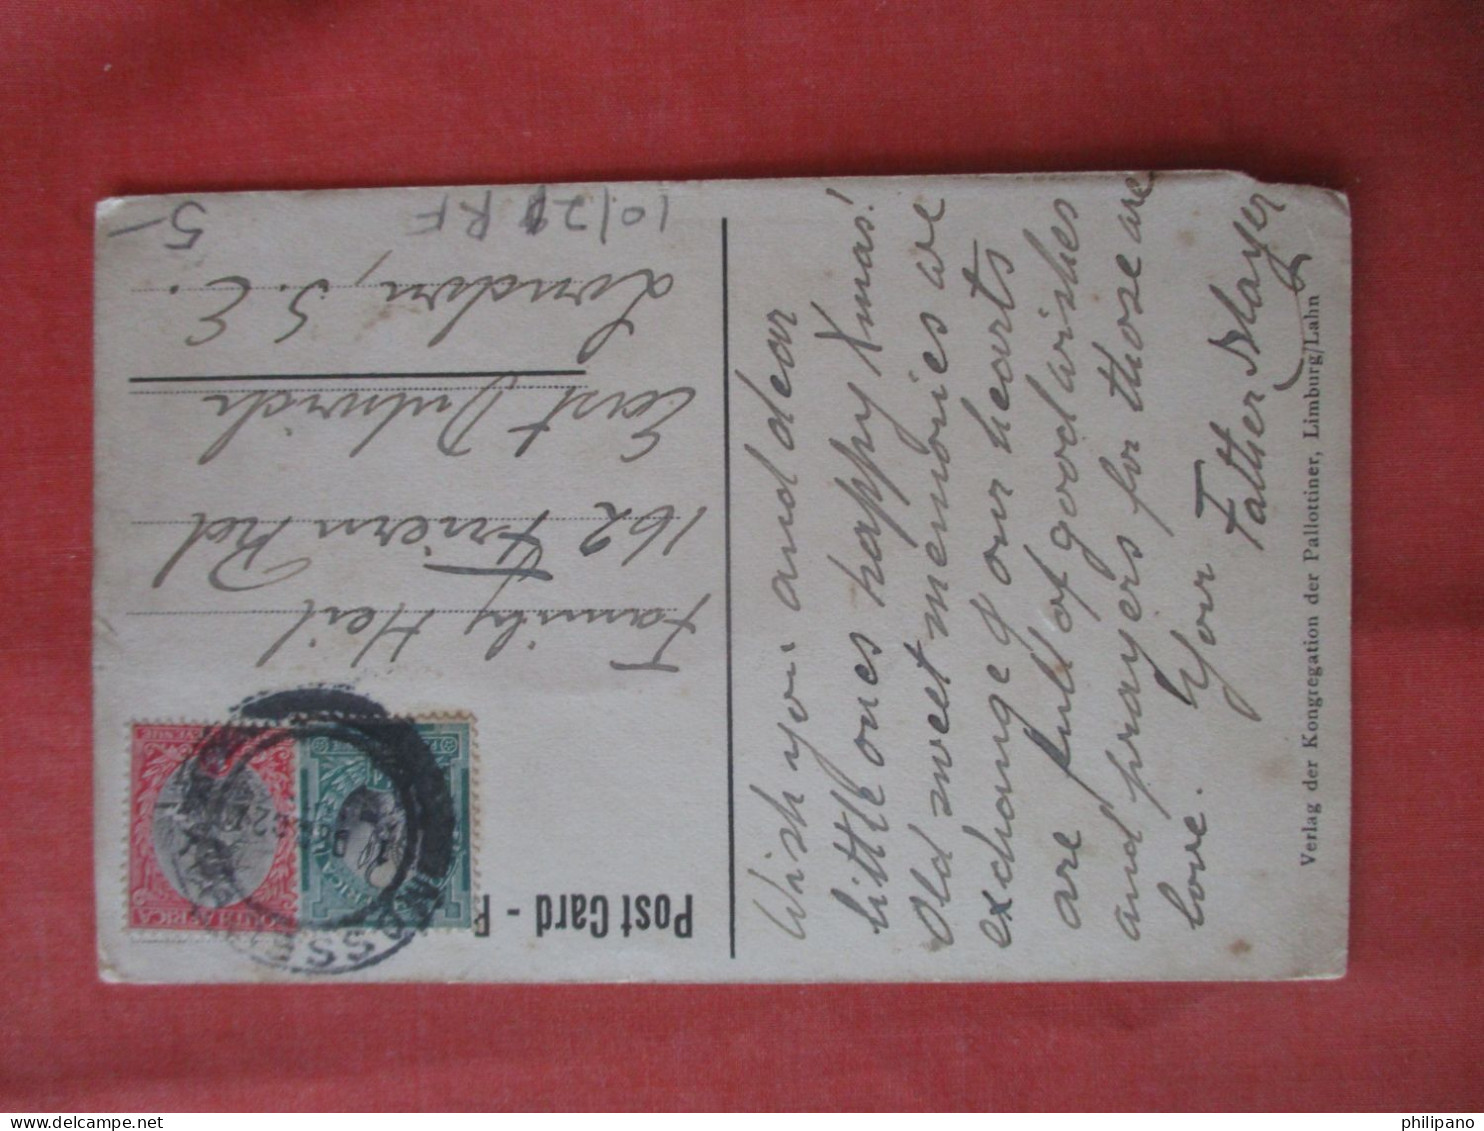 Post Card -
Wish you and dear
little ones happy Xmas!
Old sweet memories are
exchange of our hearts
are full of good wishes
and prayers for those are
love. Your
Father Mayer
Family Heil
162 Friern Rd
East Dulwich
London, S. E.
10/21 RF
5-
Verlag der Kongregation der Pallottiner, Limburg/Lahn
philipano